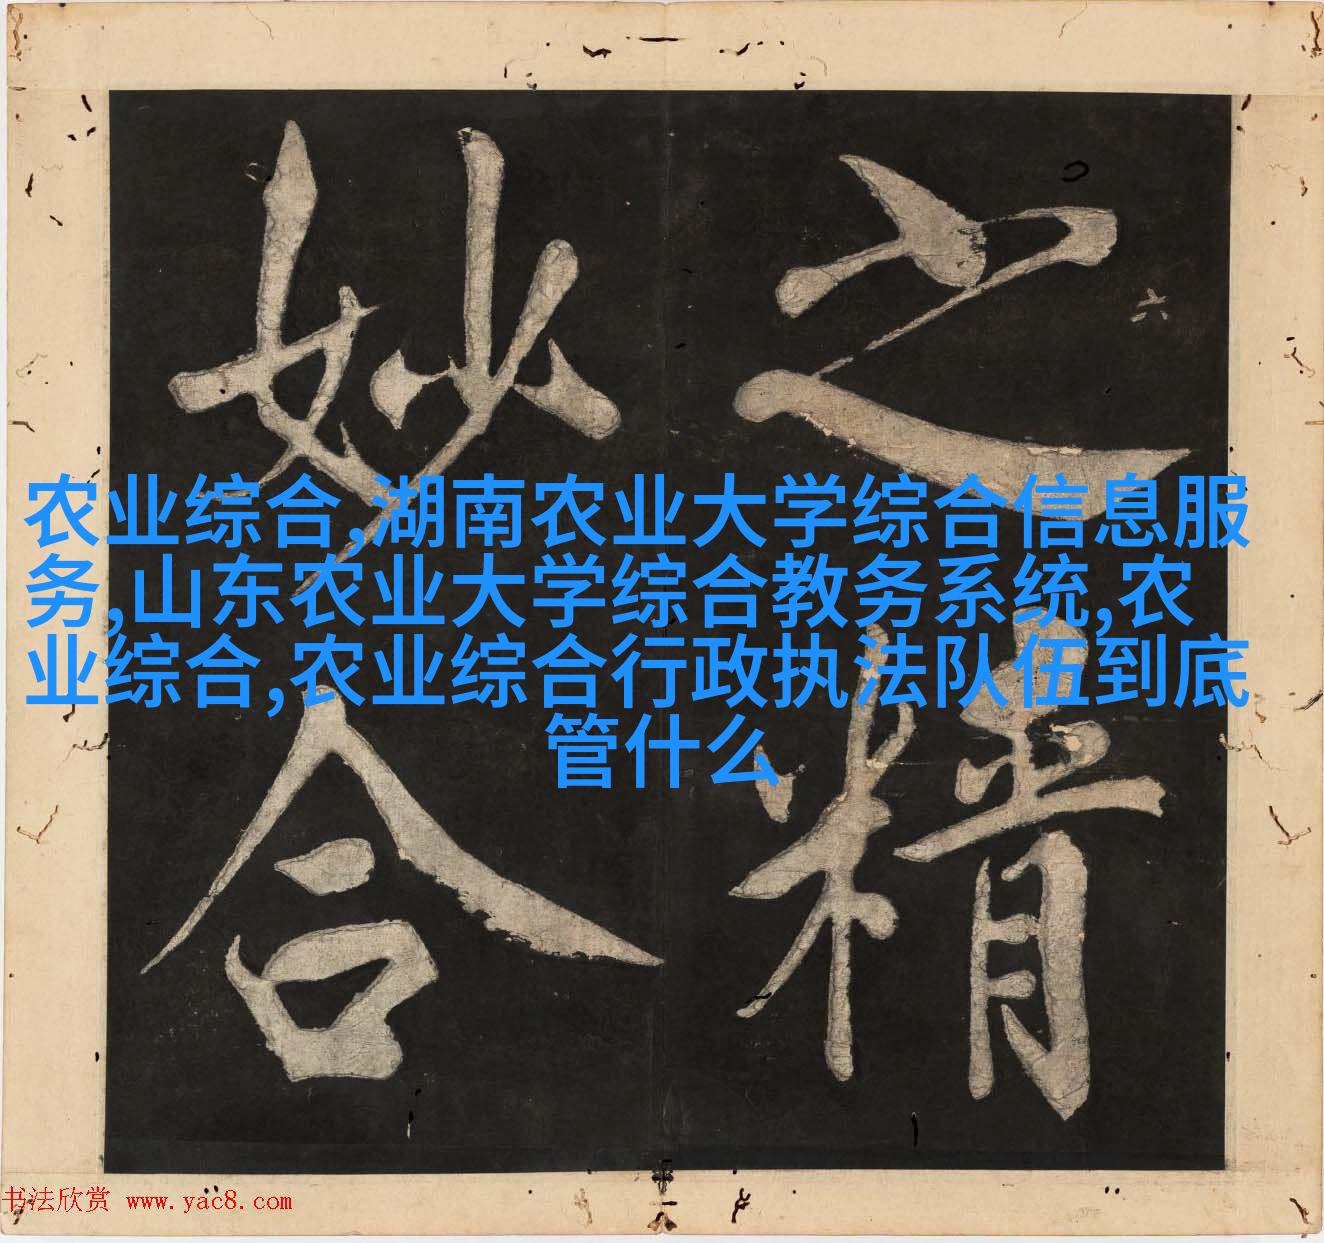 之精
妙合
六
农业综合,湖南农业大学综合信息服
务,山东农业大学综合教务系统,农
业综合,农业综合行政执法队伍到底
管什么
书法欣赏 www.yac8.com